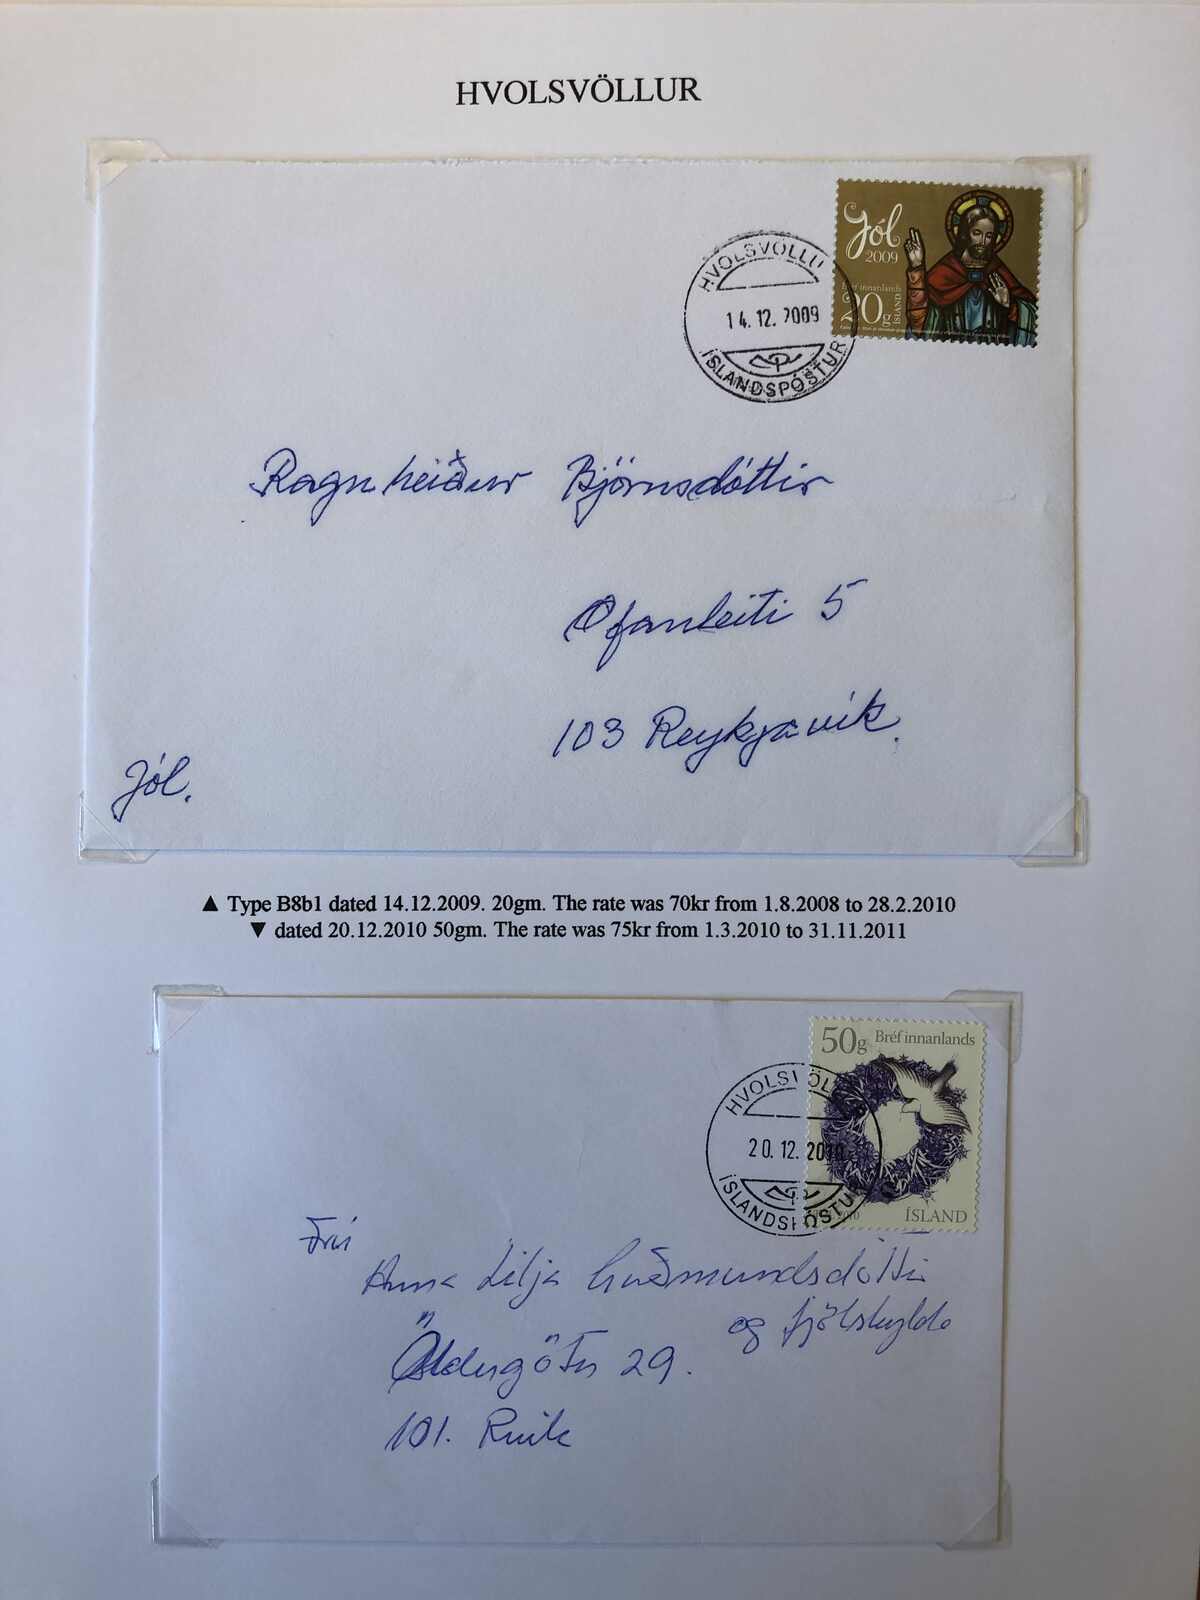 HVOLSVÖLLUR
Jól
2009
Bréf innanlands
20g
ÍSLAND
HVOLSVÖLLU
14.12.2009
ÍSLANDSPÓSTUR
Ragnheiður Björnsdóttir
Ofanleiti 5
103 Reykjavík.
Jól.
▲ Type B8b1 dated 14.12.2009. 20gm. The rate was 70kr from 1.8.2008 to 28.2.2010
▼ dated 20.12.2010 50gm. The rate was 75kr from 1.3.2010 to 31.11.2011
50g Bréf innanlands
ÍSLAND
HVOLSVÖL
20.12.2010
ÍSLANDSPÓSTUR
Frú
Anna Lilja Guðmundsdóttir
og fjölskylda
Öldugötu 29.
101. Rvik